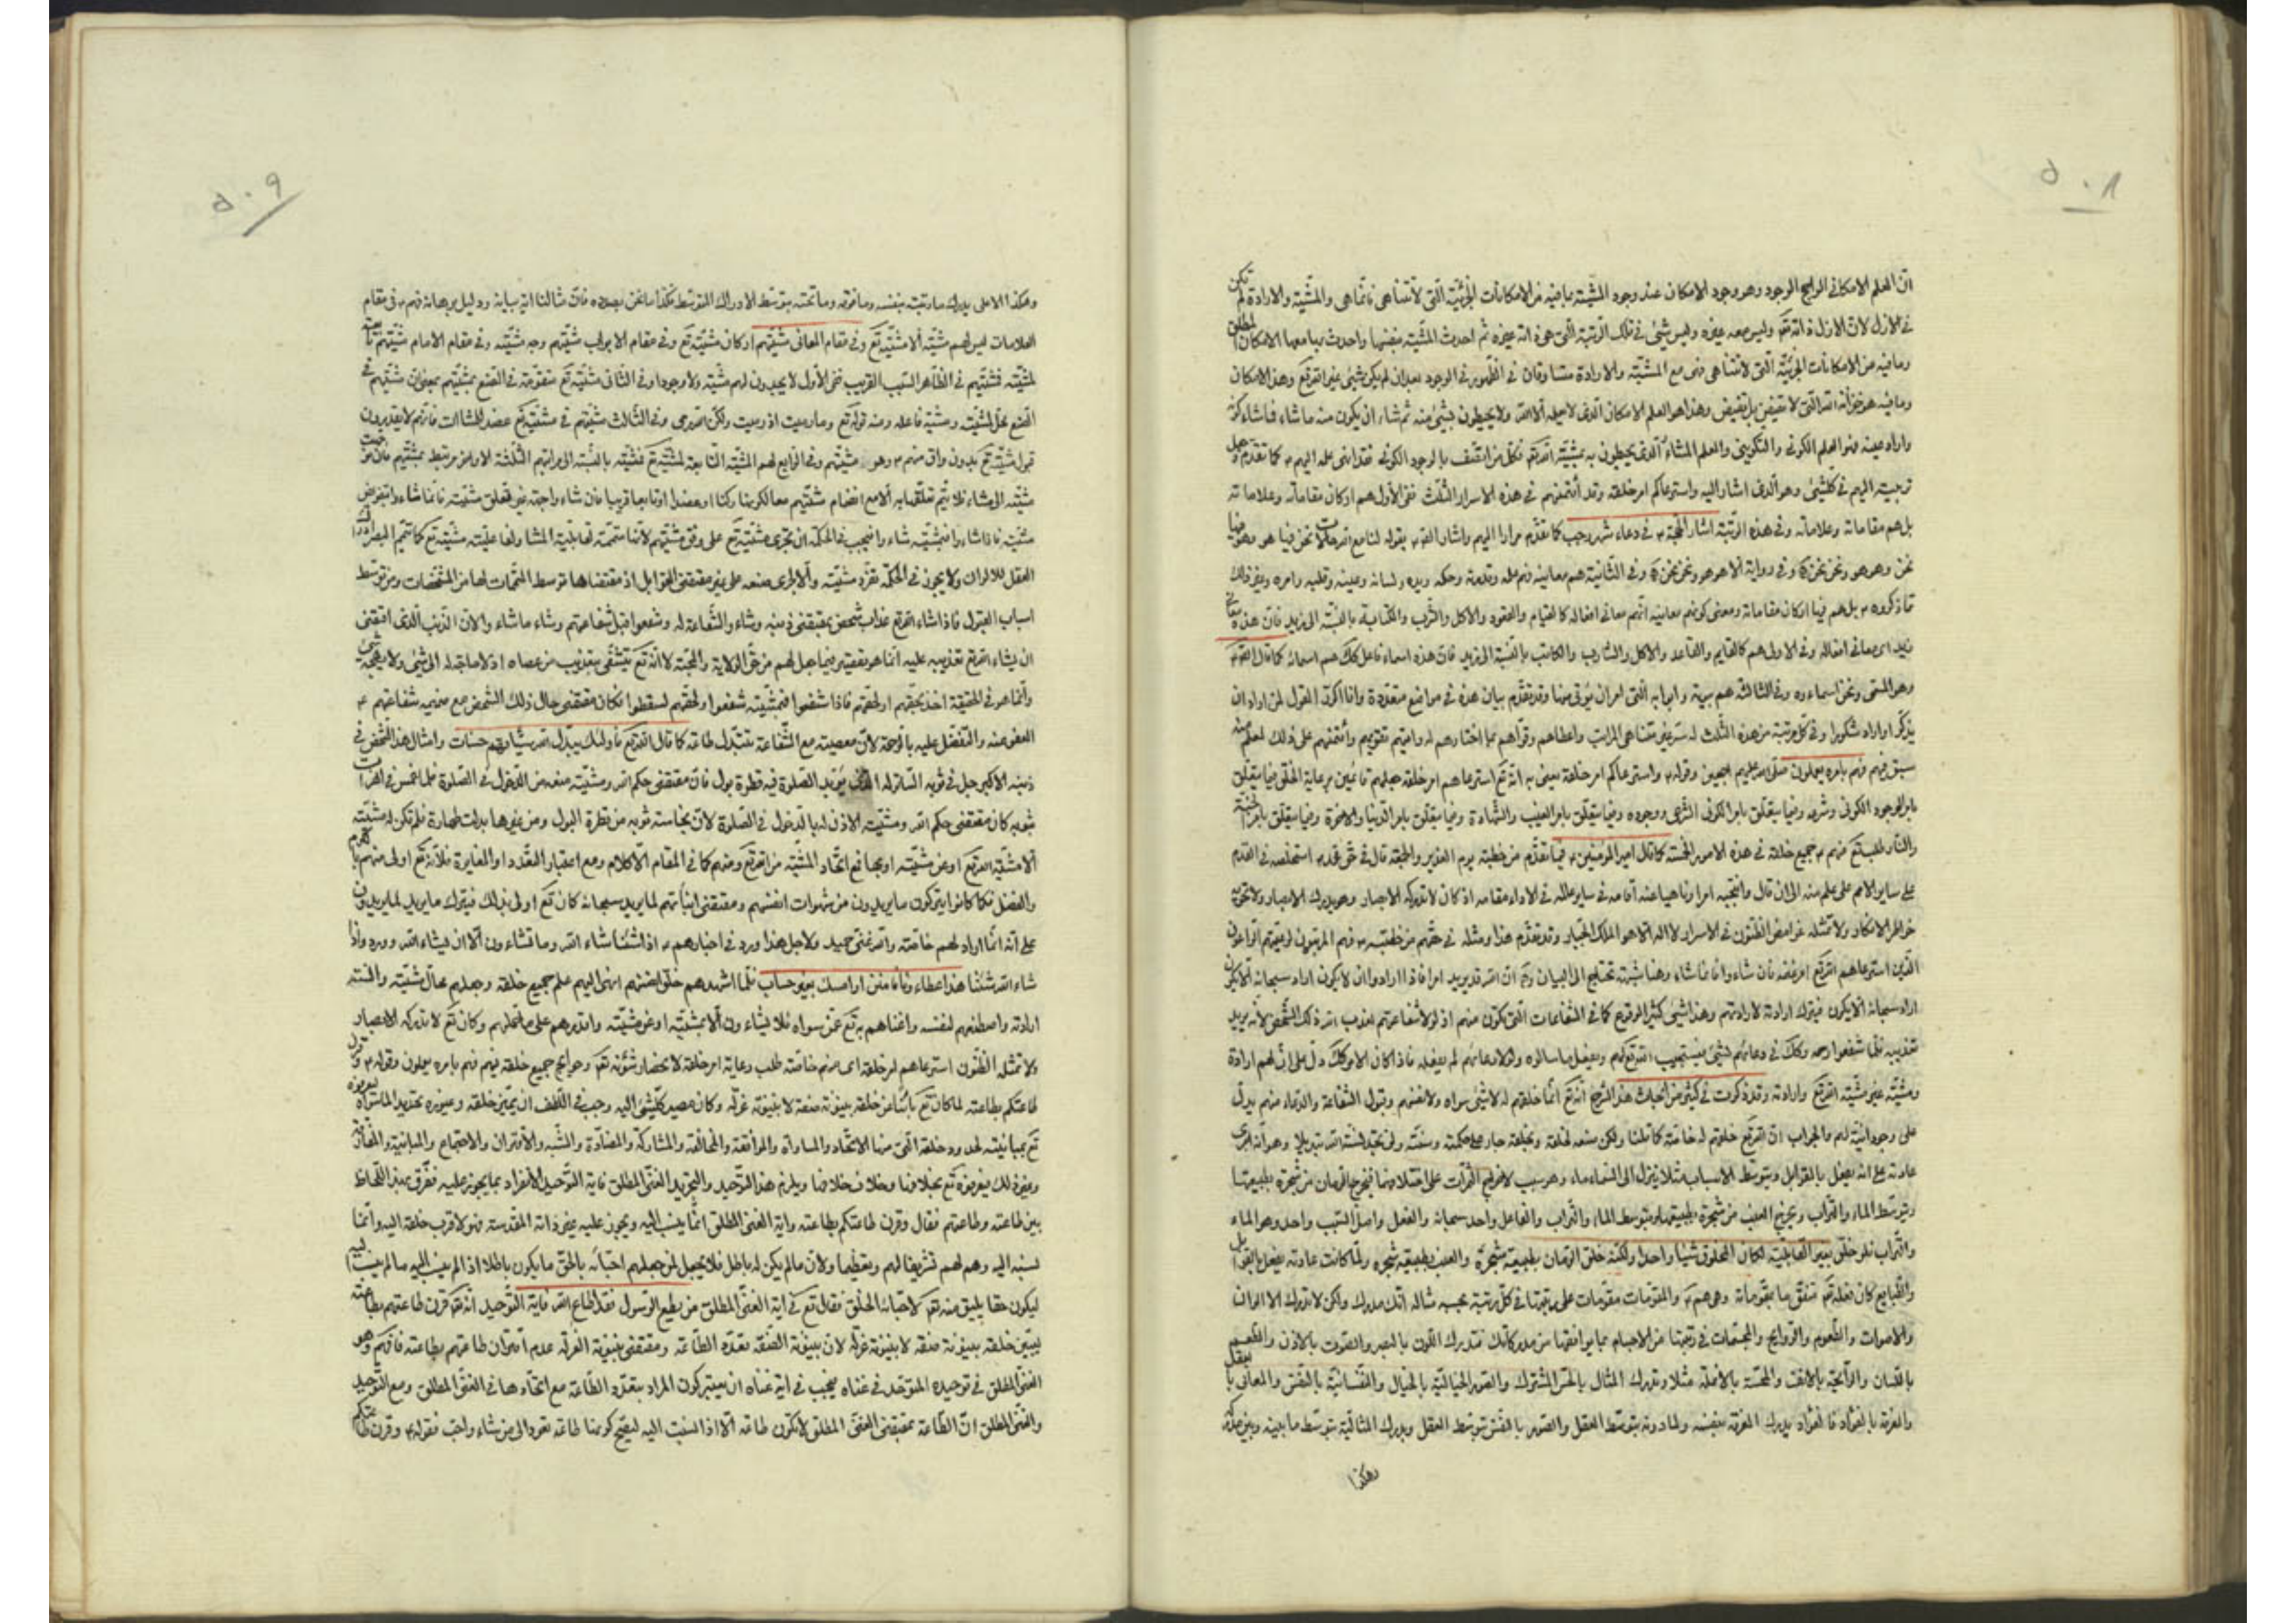 ٥٠٨
انّ العلم الامكاني الراجح الوجود وهو وجود الامكان عند وجود المشيّة بما فيه من الامكانات الجزئيّة الّتي لا تتناهى فانّما هي والمشيّة والارادة لم تكن
في الازل لانّ الازل ذاته تعـ وليس معه غيره وليس شيئ في تلك الرتبة الّتي هي ذاته غيره ثم احدث المشيّة بنفسها واحدث بها معها الامكان المطلق
وما فيه من الامكانات الجزئيّة الّتي لا تتناهى فهى مع المشيّة والارادة متساوقان في الظهور في الوجود بعد ان لم يكن شيئ غير الله تع وهذا الامكان
وما فيه هو خزائنه الّتي لا تغيض بل تفيض وهذا هو العلم الامكاني الّذي لا يعلمه الّا الله ولا يحيطون بشيئ منه ثم شاء ان يكون منه ما شاء فما شاء كونه
واراد عينه فهو العلم الكوني والتكويني والعلم المشاء الّذي يحيطون به بمشيّة الله تع فكلّ من اتصف بالوجود الكوني فقد انهى علمه اليهم ع كما تقدم
توجيه اليهم في كلّ شيئ وهو الّذي اشار اليه واسترعاكم امر خلقه وقد أئتمنهم في هذه الاسرار الثلث ففى الاول هم اركان مقاماته وعلاماته
بل هم مقاماته وعلاماته وفي هذه الرّتبة اشار الحجّة ع في دعاء شهر رجب كما تقدّم مرارا اليهم واشار الصّ ع بقوله لنا مع الله حالات نحن فيها هو وهو فيها
نحن وهو هو ونحن نحن وفي رواية الّا هو هو ونحن نحن وفي الثّانية هم معانيه فهم علمه وقدرته وحكمه ويده ولسانه وعينه وقلبه وامره وغير ذلك
ممّا ذكروه ع بل هم فيها اركان مقاماته ومعنى كونهم معانيه انّهم معاني افعاله كالقيام والقعود والاكل والشّرب والكتابة بالنّسبة الى زيد فانّ هذه معاني
زيد اى معاني افعاله وفي الاولى هم كالقايم والقاعد والاكل والشارب والكاتب بالنّسبة الى زيد فانّ هذه اسماء فاعل كك هم اسمائه كما قال الصّ ع
وهو المسمّى ونحن اسماءه وفي الثالثة هم بيوته وابوابه الّتي امر ان يؤتى منها وقد تقدّم بيان هذه في مواضع متعدّدة وانا اكرّر القول لمن اراد ان
يذكّر او اراد شكورا وفي كلّ مرتبة من هذه الثّلث له سرّ غير متناهى المراتب واعطاهم وقوّاهم
سبق فيهم فهم بامره يعملون صلّى الله عليهم اجمعين وقوله ع واسترعاكم امر خلقه يعنى به انّه تع استرعاهم امر خلقه جعلهم قائمين برعاية الخلق فيما يتعلق
بامر الوجود الكوني وشرعه وفيما يتعلّق بامر الكوني الشرعي ووجوده وفيما يتعلّق بامر الغيب والشّهادة وفيما يتعلّق بامر الدّنيا والاخرة وفيما يتعلّق بامر الجنّة
والنّار فجميع خلقه في هذه الامور الخمسة كما قال امير المؤمنين ع فيما تقدّم من خطبته يوم الغدير والجمعة قال في حقّ محمد ص استخلصه في القدم
على ساير الامم على علم منه الى ان قال وانتجبه امرا وناهيا عنه أقامه في ساير عالمه في الاداء مقامه اذ كان لا تدركه الابصار وهو يدرك الابصار ولا تحويه
خواطر الافكار ولا تمثّله غوامض الظّنون في الاسرار لا اله الّا هو الملك الجبّار وقد تقدّم هذا ومثله في حقّهم من خطبته ع فهم المربّون لرعيتهم الراعون
الّذين استرعاهم الله تع امر غنمه فان شاء وا فانّما شاء وهنا شبهة تحتاج الى البيان وهى ان الله قد يريد امرا فاذا ارادوا ان لا يكون اراد سبحانه الّا يكون
اراد سبحانه ألّا يكون فيترك ارادته لارادتهم وهذا شيئ كثير الوقوع كما في الشفاعات الّتي تكون منهم اذ لو لا شفاعتهم لعذّب الله ذلك الشّخص لانّه يريد
تعذيبه فلمّا شفعوا رحمه وكك في دعائهم لشيئ فيستجيب الله تع لهم ويفعل ما سالوه ولولا دعائهم لم يفعله فاذا كان الامر كك دلّ على انّ لهم ارادة
ومشيّة غير مشيّة الله تع وارادته وقد ذكرت في كثير من ابحاث هذا الشرح انّه تع انّما خلقهم له لا لشيئ سواه ولا لانفسهم وقبول الشفاعة والدّعاء منهم يدلّ
على وجود انيّة لهم والجواب انّ الله تع خلقهم له خاصّة كما قلنا ولكن صنعه لخلقه وبخلقه جار على حكمته وسنّته ولن تجد لسنّة الله تبديلا وهو انّه اجرى
عادته على انّه يفعل بالقوابل وبتوسّط الاسباب مثلا ينزل الى السّماء ماء وهو سبب لاخراج الثمرات على اختلافها فيخرج الرّمان من شجرة بطبيعتها
وبتوسّط الماء والتّراب ويخرج العنب من شجرة بطبيعتها وبتوسط الماء والتّراب والفاعل واحد سبحانه والفعل واصل السّبب واحد وهو الماء
والتّراب فلو خلق بغير القابليّة لكان المخلوق شيئا واحدا ولكنّه خلق الرّمان بطبيعة شجرة والعنب بطبيعة شجره ولمّا كانت عادته يفعل بالقوابل
والطّبايع كان فعله تع متفق ما بمقوّمات وهى هم ع والمقوّمات مقوّمات على مراتبها في كلّ رتبة بحسبه مثاله انّك مدرك ولكن لا تدرك الالوان
والاصوات والطّعوم والرّوايح والمجسّمات في رتبتها من الاجسام بما يوافقها من مدركاتك فتدرك اللّون بالبصر والصّوت بالاذن والطّعم
باللّسان والرّائحة بالانف والمحسّة بالانملة مثلا وتدرك المثال بالحسّ المشترك والصّور الخياليّة بالخيال والنّفسانيّة بالنّفس والمعاني بالعقل
والمعرفة بالفؤاد فالفؤاد يدرك المعرفة بنفسه ولما دونه بتوسّط العقل والصّور بالنّفس بتوسّط العقل ويدرك المثاليّة بتوسّط ما بينه وبين مدركه
وهكذا
٥٠٩
وهكذا الاعلى يدرك ما رتبته بنفسه وما فوقه وما تحته بتوسّط الادراك المتوسّط هكذا ما نحن بصدده فانّ مثالنا اية بيانه ودليل برهانه فهم ع في مقام
العلامات ليس لهم مشيّة ألّا مشيّته تع وفي مقام المعاني مشيّتهم اركان مشيّته تع وفي مقام الابواب مشيّتهم وجه مشيّته وفي مقام الامام مشيّتهم تابعة
لمشيّته فمشيّتهم في الظّاهر السّبب القريب ففى الاول لا يجدون لهم مشيّة ولا وجودا وفي الثّاني مشيّته تع متقوّمة في الصّنع بمشيّتهم بمعنى انّ مشيّتهم في
الصّنع محلّ لمشيّته ومشيّة فاعله ومنه قوله تع وما رميت اذ رميت ولكنّ الله رمى وفي الثّالث مشيّتهم في مشيّته تع عضد للمشاات فانّهم لا يقدرون
قبول مشيّته تع بدون واق منهم ع وهو مشيّتهم وفي الرّابع لهم المشيّة التّابعة لمشيّته تع فمشيّته بالنّسبة الى مراتبهم الثّلثة الاول مرتبط بمشيّتهم
مشيّته الى مشاء فلا يتم تعلّقها به ألّا مع انضمام مشيّتهم معا لكونها ركنا او عضدا او تابعا قريبا فان شاء واجهة غير متعلق مشيّته فانّما شاء وا
مشيّته فاذا شاء وا فبمشيّته شاء وا فيجب في الحكمة ان تجرى مشيّته تع على وفق مشيّتهم لانّها متمّمة لقابليّة المشاء ولفاعليّة مشيّته تع كما يتمّم البصر ادراك
العقل للالوان ولا يجوز في الحكمة تفرّد مشيّته وألّا لجرى صنعه على غير مقتضى القوابل اذ مقتضاها توسط المتمّمات لها من المشخّصات ومن توسّط
اسباب القبول فاذا شاء الله تع عذاب شخص بمقتضى ذنبه وشاء وا الشّفاعة له وشفعوا قبل شفاعتهم وشاء ما شاء وا لانّ الذّنب الّذي اقتضى
ان يشاء الله تع تعذيبه عليه انّما هو تقصير فيما جعل لهم من حقّ الولاية والمحبّة لا انّه تع يتشفّى بتعذيب من عصاه اذ لا حاجة له الى شيئ ولا يهيجه شيئ
وانّما هو في الحقيقة اخذ بحقّهم او لحقّهم فاذا شفعوا فبمشيّته شفعوا ولحقّهم لسقطوا فكان مقتضى حال ذلك الشّخص مع ضميمة شفاعتهم ع
العفو عنه والتّفضّل عليه بالرّحمة لانّ معصيته مع الشّفاعة تتبدّل طاعة كما قال الله تع فأولئك يبدّل الله سيّئاتهم حسنات وامثال هذا الشّخص في
ذنبه الاكبر رجل في ثوبه السّاتر له الّذي يريد الصّلوة فيه قطرة بول فانّ مقتضى حكم الله ومشيّته منعه من الدّخول في الصّلوة فلمّا غمس في الفرات
ثوبه كان مقتضى حكم الله ومشيّته الاذن له بالدّخول في الصّلوة لانّ نجاسة ثوبه من قطرة البول ومن غيرها بدلت طهارة فلم تكن له مشيّة
ألّا مشيّة الله تع او عن مشيّته او بها مع اتّحاد المشيّة من الله تع ومنهم كما في المقام الاوّل ومع اعتبار التّعدّد او المغايرة فلانّه تع اولى منهم بالكرم
والفضل فكما كانوا يتركون ما يريدون من شهوات انفسهم ومقتضى انيّاتهم لما يريد سبحانه كان تع اولى بذلك فيترك ما يريد لما يريدون
على انّه انّما اراد لهم خاصّة والله غنىّ حميد ولاجل هذا ورد في اخبارهم ع اذا شئنا شاء الله وما تشاءون ألّا ان يشاء الله وورد واذا
شاء الله شئنا هذا عطاءنا فامنن او امسك بغير حساب فلمّا اشهدهم خلق انفسهم انهى اليهم علم جميع خلقه وجعلهم محالّ مشيّته والسنة
ارادته واصطنعهم لنفسه واغناهم به تع عمّن سواه فلا يشاءون ألّا بمشيّته او عن مشيّته واقدرهم على ما حمّلهم وكان تع لا تدركه الابصار
ولا تمثّله الظّنون استرعاهم امر خلقه اى منهم خاصّة طلب رعاية امر خلقه لانحصار شؤنه تع وحوايج جميع خلقه فيهم فهم بامره يعملون وقوله ع وقرن
طاعتكم بطاعته لما كان تع بائنا عن خلقه بينونة صفة لا بينونة عزلة وكان مصير كلّ شئ اليه وجب في اللّطف ان يميّز خلقه وغيوره تحديد لما سواه ليعرفوه
تع بمباينته لحدود خلقه الّتي منها الاتّحاد والمساواة والموافقة والمخالفة والمشاركة والمضادّة والشّبه والاقتران والاجتماع والمباينة والمفارقة
وغير ذلك فيعرفوه تع بخلافها وخلاف خلافها ويلزم هذا التّوحيد والتّجريد الغنى المطلق فاية التّوحيد الانفراد بما يجوز عليه ففرّق بهذا اللّحاظ
بين طاعته وطاعتهم فقال وقرن طاعتكم بطاعته واية الغنى المطلق انّما ينسب اليه ويجوز عليه غير ذاته المقدّسة فهو لاقرب خلقه اليه وانّما
نسبه اليه وهم لهم تشريفا لهم وتعظيما ولانّ ما لم يكن له باطل فلا يجعل لمن جعلهم احبّائه بالحقّ ما يكون باطلا اذ الم ينسب اليه ما لم ينسب اليه
ليكون حقا يليق منه تع لاحبّائه الحقّ فقال تع في اية الغنى المطلق من يطع الرّسول فقد اطاع الله فاية التّوحيد انّه تع قرن طاعتهم بطاعته
ليبيّن خلقه بينونة صفة لا بينونة عزلة لانّ بينونة الصّفة تعدّد الطّاعة ومقتضى بينونة العزلة عدم اقتران طاعتهم بطاعته فافهم وهو
الغنىّ المطلق في توحيده المتوحّد في غناه فيجب في اية غناه ان يعتبر كون المراد بتعدّد الطّاعة مع اتّحادها في الغنى المطلق ومع التّوحيد
والغنى المطلق انّ الطّاعة بمقتضى الغنى المطلق لا تكون طاعة الّا اذا نسبت اليه ليصحّ كونها طاعة تعود الى من شاء واحبّ فقوله ع وقرن طاعتكم